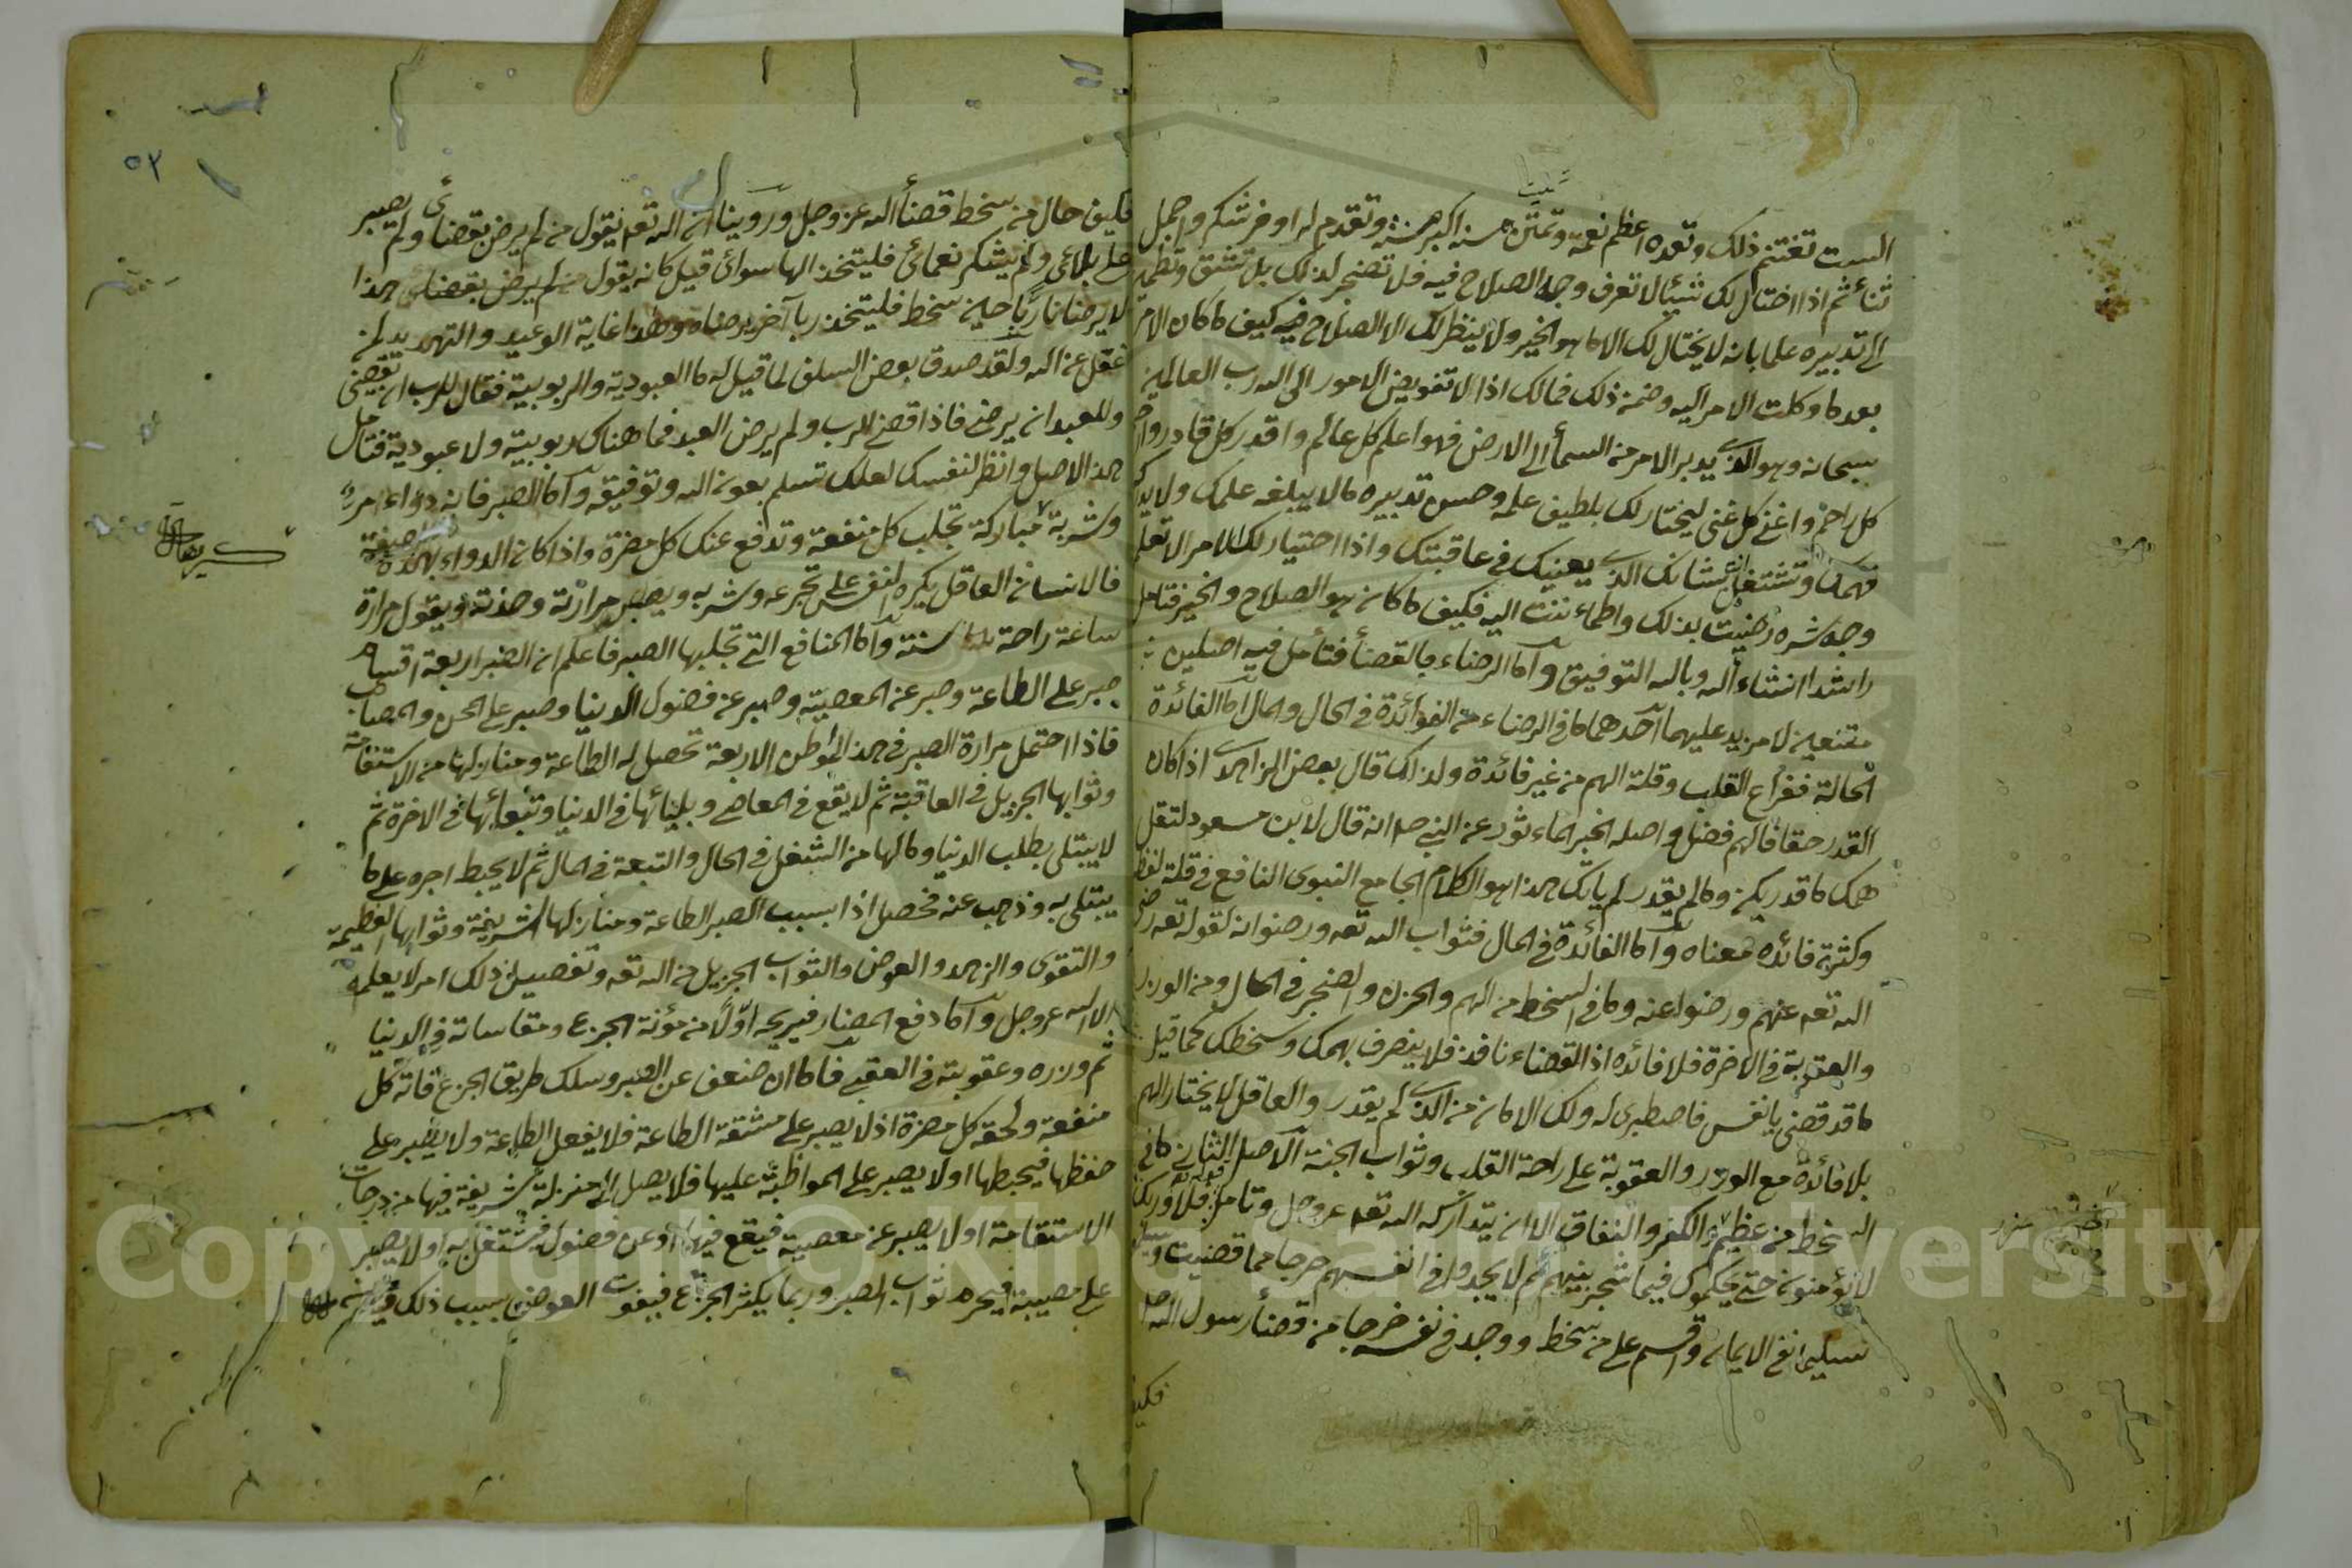 الست تغتنم ذلك وتعده اعظم نعمة وتمتن منه اكبر منة وتقدم له اوفر شكر واجمل
ثناء ثم اذا اختار لك شيئا لا تعرف وجه الصلاح فيه فلا تضجر لذلك بل تثق وتطمئن
الى تدبيره علما بانه لا يختار لك الا ما هو الخير ولا ينظر لك الا الصلاح فيه كيف ما كان الامر
بعد ما وكلت الامر اليه وضمن ذلك فمالك اذا لا تفويض الامور الى الله رب العالمين
سبحانه وهو الذي يدبر الامر من السماء الى الارض فهو اعلم كل عالم واقدر كل قادر وارحم
كل راحم واغنى كل غني ليختار لك بلطيف علمه وحسن تدبيره مالا يبلغه علمك ولا يدركه
فهمك وتشتغل بشانك الذي يعنيك في عاقبتك واذا اختيار لك الامر لا تعلم
وجه شره رضيت بذلك واطماءننت اليه فكيف ما كان هو الصلاح والخير فتامل
راشدا انشاء الله وبالله التوفيق واما الرضاء بالقضاء فتأمل فيه اصلين
مقنعين لا مزيد عليهما احدهما ما في الرضاء من الفوائدة في الحال والمال اما الفائدة
الحالة ففراغ القلب وقلة الهم من غير فائدة ولذلك قال بعض الزاهد اذا كان
القدر حقا فالهم فضل واصله الخبر الماءثور عن النبي صلم انه قال لابن مسعود لتقل
همك ما قدر يكن وما لم يقدر لم ياتك هذا هو الكلام الجامع النبوي النافع في قلة لفظه
وكثرة فائده معناه واما الفائدة في المال فثواب الله تعه ورضوانه لقوله تعه رضى
الله تعه عنهم ورضوا عنه وما في السخط من الهم والحزن والضجر في الحال ومن الوزر
والعقوبة في الاخرة فلا فائده اذ القضاء نافذ فلا ينصرف بهمك وسخطك كما قيل
ما قد قضى يا نفس فاصطبرى له ولك الامان من الذي لم يقدر والعاقل لا يختار الهم
بلا فائدة مع الوزر والعقوبة على راحة القلب وثواب الجنة الاصل الثاني ما في
السخط من عظيم الكفر والنفاق الا ان يتداركه الله تعه عز وجل وتامل قوله تعه فلا وربك
لا يؤمنون حتى يحكموك فيما شجر بينهم ثم لا يجدوا في انفسهم حرجا مما قضيت ويسلموا
تسليما نفى الايمان واقسم على من سخط ووجد في نفسه حرجا من قضاء رسول الله
فكيف
٥٢
فكيف حال من سخط قضاء الله عز وجل وروينا ان الله تعه يقول من لم يرض بقضائى ولم يصبر
على بلائى ولم يشكر نعمائى فليتخذ الها سوائى قيل كانه يقول من لم يرض بقضائى هذا
لا يرضانا ربا حين سخط فليتخذ ربا آخر يرضاه وهذا غاية الوعيد والتهديد لمن
غفل عن الله ولقد صدق بعض السلف لما قيل له ما العبودية والربوبية فقال للرب ان يقضى
وللعبد ان يرضى فاذا قضى للرب ولم يرض العبد فما هناك ربوبية ولا عبودية فتامل
هذا الاصل وانظر لنفسك لعلك تسلم بعون الله وتوفيقه واما الصبر فانه دواء مر
وشربة مباركة تجلب كل منفعة وتدفع عنك كل مضرة واذا كان الدواء بهذه الصفة
فالانسان العاقل يكره النفس على تجرعه وشربه ويصبر على مرارته وحدته ويقول مرارة
ساعة راحة سنة واما المنافع التي تجلبها الصبر فاعلم ان الصبر اربعة اقسام
صبر على الطاعة وصبر عن المعصية وصبر عن فضول الدنيا وصبر على المحن والمصائب
فاذا احتمل مرارة الصبر في هذا المواطن الاربعة تحصل له الطاعة ومنازلها من الاستقامة
وثوابها الجزيل في العاقبة ثم لا يقع في المعاصى وبليائها في الدنيا وتبعاتها في الاخرة ثم
لا يبتلى بطلب الدنيا وما لها من الشغل في الحال والتبعة في المال ثم لا يحبط اجره على ما
يبتلى به وذهب عنه فحصل اذا بسبب الصبر الطاعة ومنازلها الشريفة وثوابها العظيمة
والتقوى والزهد والعوض والثواب الجزيل من الله تعه وتفصيل ذلك امر لا يعلمه
الا الله عز وجل واما دفع المضار فيريحه اولا من مؤنة الجزع ومقاساته في الدنيا
ثم وزره وعقوبته في العقبى فاما ان ضعف عن الصبر وسلك طريق الجزع فاته كل
منفعة ولحقه كل مضرة اذ لا يصبر على مشقة الطاعة فلا يفعل الطاعة ولا يصبر على
حفظها فيحبطها اولا يصبر على المواظبة عليها فلا يصل الى منزلة شريفة فيها من درجات
الاستقامة اولا يصبر عن معصية فيقع فيها او عن فضول فيشتغل به اولا يصبر
على مصيبة فيحرم ثواب الصبر وربما يكثر الجزع فيفوت العوض بسبب ذلك
Copyright © King Saud University